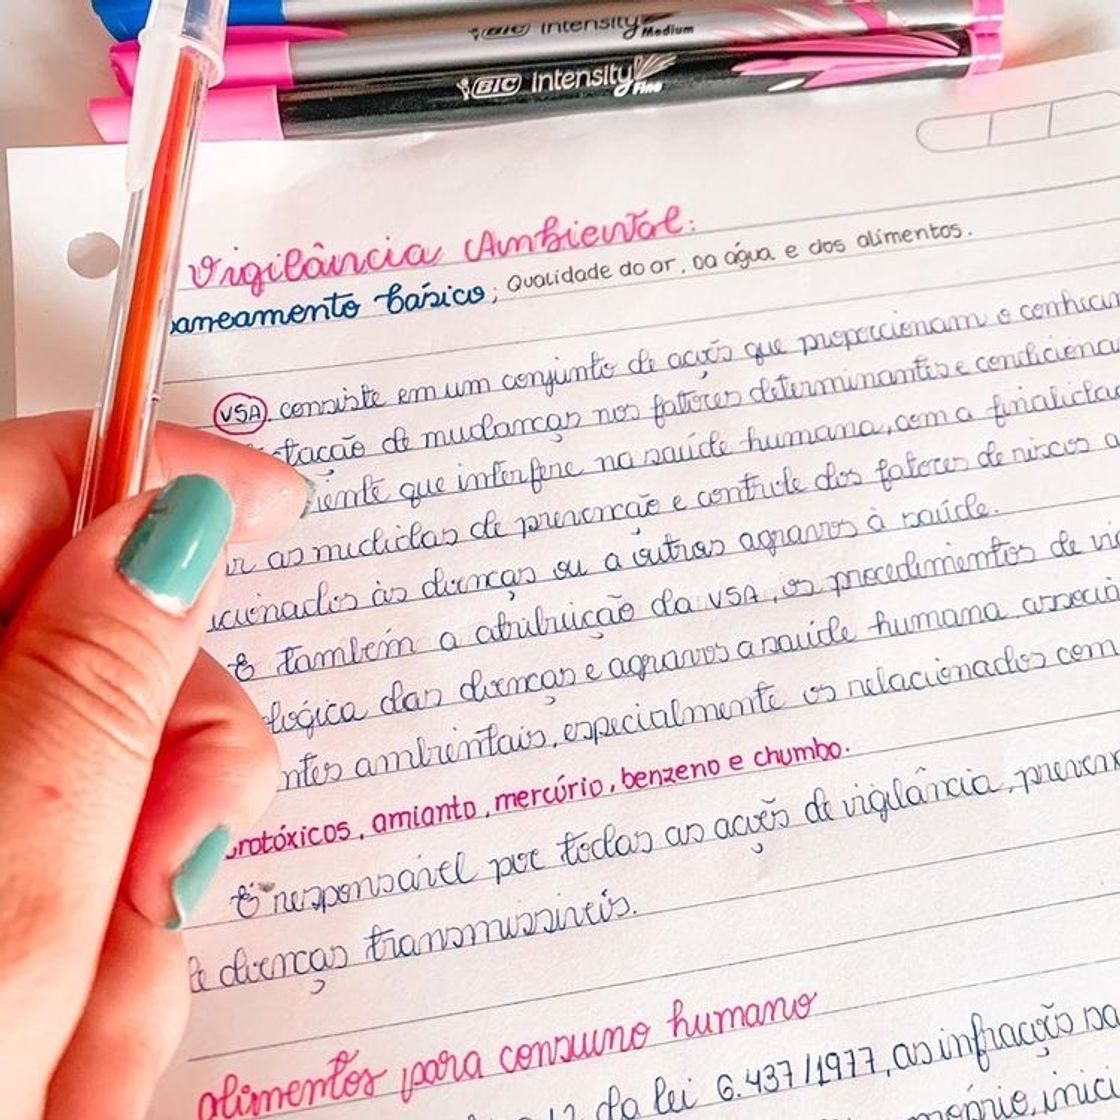 BIC intensity Medium
BIC intensity Fine
Vigilância Ambiental:
saneamento básico; Qualidade do ar, da água e dos alimentos.
VSA consiste em um conjunto de ações que proporcionam o
de mudanças nos fatores determinantes e
que interfere na saúde humana, com a
as medidas de prevenção e controle dos fatores de riscos
às doenças ou a outros agravos à saúde.
É também a atribuição da VSA, os procedimentos de
das doenças e agravos a saúde humana
ambientais, especialmente os relacionados com
amianto, mercúrio, benzeno e chumbo.
É responsável por todas as ações de vigilância,
doenças transmissíveis.
alimentos para consumo humano
da lei 6.437/1977, as infração